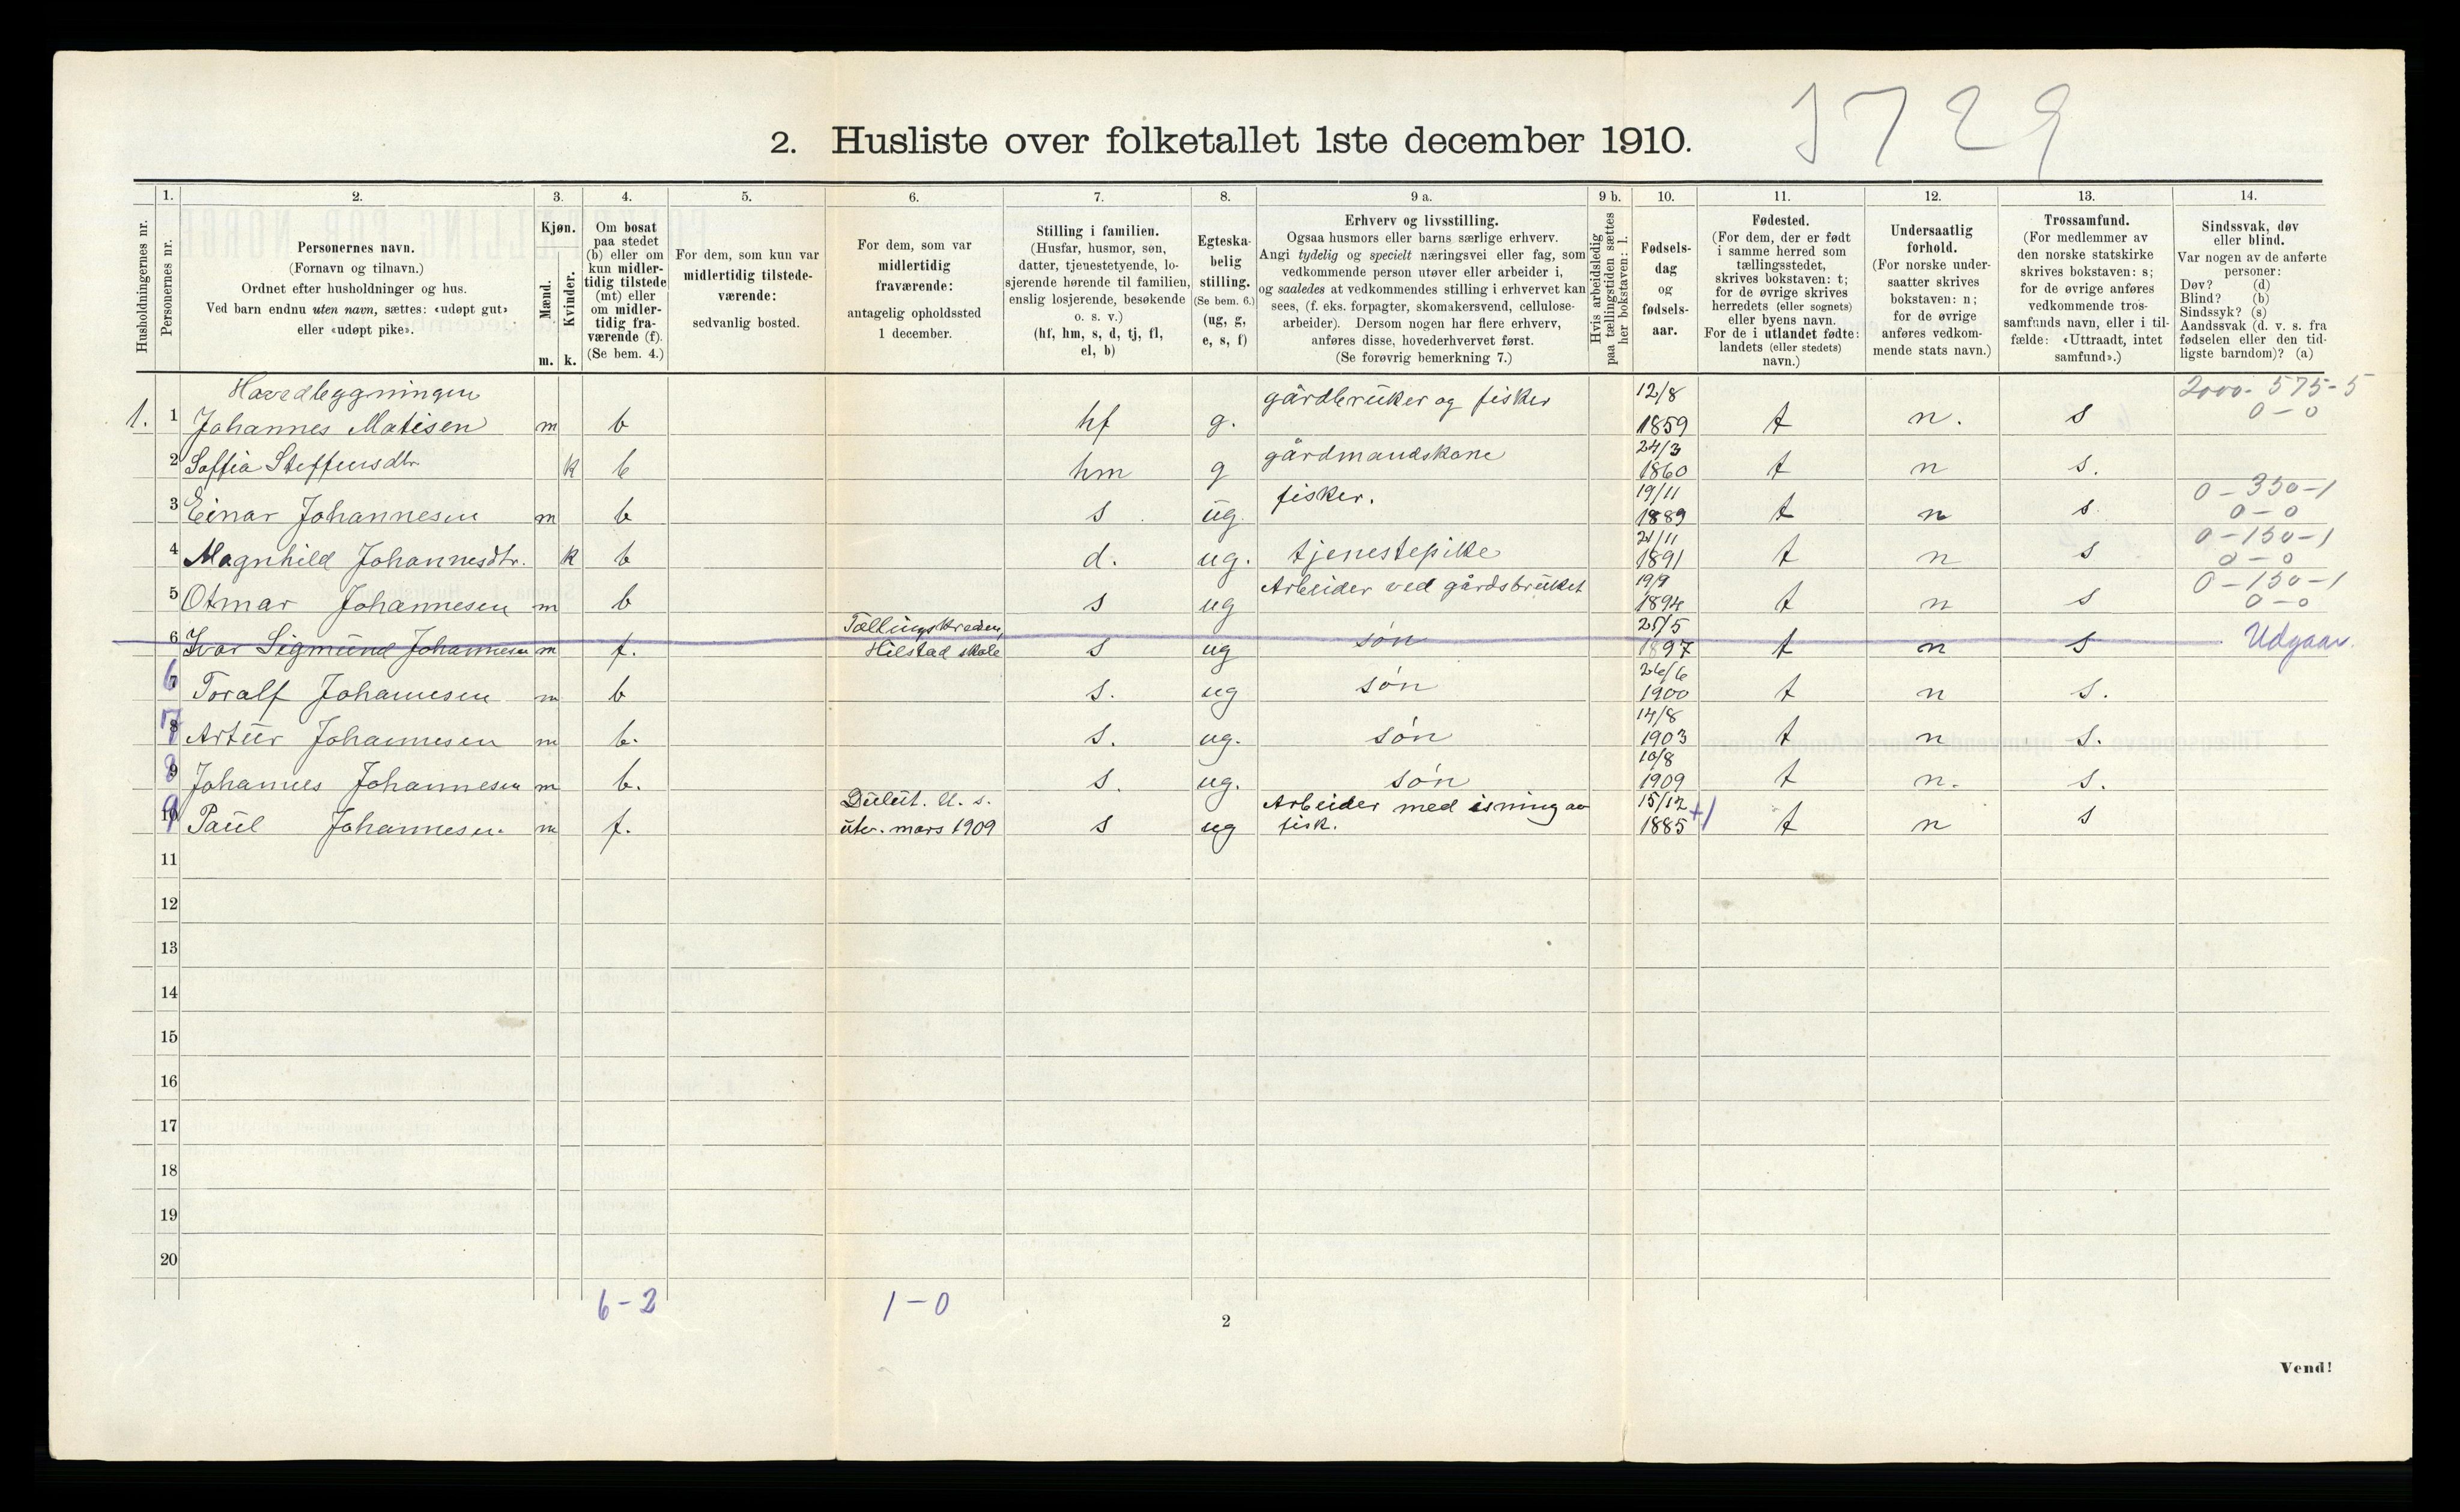 1729
2. Husliste over folketallet 1ste december 1910.
Husholdningernes nr.
1.
Personernes nr.
2.
Personernes navn.
(Fornavn og tilnavn.)
Ordnet efter husholdninger og hus.
Ved barn endnu uten navn, sættes: «udøpt gut»
eller «udøpt pike».
3.
Kjøn.
Mænd.
Kvinder.
m. k.
4.
Om bosat
paa stedet
(b) eller om
kun midler-
tidig tilstede
(mt) eller
om midler-
tidig fra-
værende (f).
(Se bem. 4.)
5.
For dem, som kun var
midlertidig tilstede-
værende:
sedvanlig bosted.
6.
For dem, som var
midlertidig
fraværende:
antagelig opholdssted
1 december.
7.
Stilling i familien.
(Husfar, husmor, søn,
datter, tjenestetyende, lo-
sjerende hørende til familien,
enslig losjerende, besøkende
o. s. v.)
(hf, hm, s, d, tj, fl,
el, b)
8.
Egteska-
belig
stilling.
(Se bem. 6.)
(ug, g,
e, s, f)
9 a.
Erhverv og livsstilling.
Ogsaa husmors eller barns særlige erhverv.
Angi tydelig og specielt næringsvei eller fag, som
vedkommende person utøver eller arbeider i,
og saaledes at vedkommendes stilling i erhvervet kan
sees, (f. eks. forpagter, skomakersvend, cellulose-
arbeider). Dersom nogen har flere erhverv,
anføres disse, hovederhvervet først.
(Se forøvrig bemerkning 7.)
9 b.
Hvis arbeidsledig
paa tællingstiden sættes
her bokstaven: l.
10.
Fødsels-
dag
og
fødsels-
aar.
11.
Fødested.
(For dem, der er født
i samme herred som
tællingsstedet,
skrives bokstaven: t;
for de øvrige skrives
herredets (eller sognets)
eller byens navn.
For de i utlandet fødte:
landets (eller stedets)
navn.)
12.
Undersaatlig
forhold.
(For norske under-
saatter skrives
bokstaven: n;
for de øvrige
anføres vedkom-
mende stats navn.)
13.
Trossamfund.
(For medlemmer av
den norske statskirke
skrives bokstaven: s;
for de øvrige anføres
vedkommende tros-
samfunds navn, eller i til-
fælde: «Uttraadt, intet
samfund».)
14.
Sindssvak, døv
eller blind.
Var nogen av de anførte
personer:
Døv? (d)
Blind? (b)
Sindssyk? (s)
Aandssvak (d. v. s. fra
fødselen eller den tid-
ligste barndom)? (a)
Hovedbyggningen gårdbruker og fisker 12/8 2000-575-5
1. 1 Johannes Matisen m b hf g. 1859 t n. s 0-0
2 Soffia Steffensdtr. k b hm g gårdmandskone 24/3 1860 t n s.
3 Einar Johannesen m b s ug. fisker. 19/11 1889 t n s 0-350-1 0-0
4 Magnhild Johannesdtr. k b d. ug. tjenestepike 21/11 1891 t n s 0-150-1 0-0
5 Otmar Johannesen m b s ug Arbeider ved gårdsbruket 19/9 1894 t n s 0-150-1 0-0
6 Ivar Sigmund Johannesen m f. Tællingskredsen, Hilstad skole s ug søn 25/5 1897 t n s Udgaar.
6 Toralf Johannesen m b s. ug søn 26/6 1900 t n s.
7 8 Artur Johannesen m b. s. ug. søn 14/8 1903 t n s.
8 9 Johannes Johannesen m b. s. ug. søn 10/8 1909 t n. s.
9 10 Paul Johannesen m f. Dulut. U. s. utv. mars 1909 s ug Arbeider med isning av fisk. 15/12 1885 +1 t n s
11
12
13
14
15
16
17
18
19
20
6-2 1-0
2
Vend!